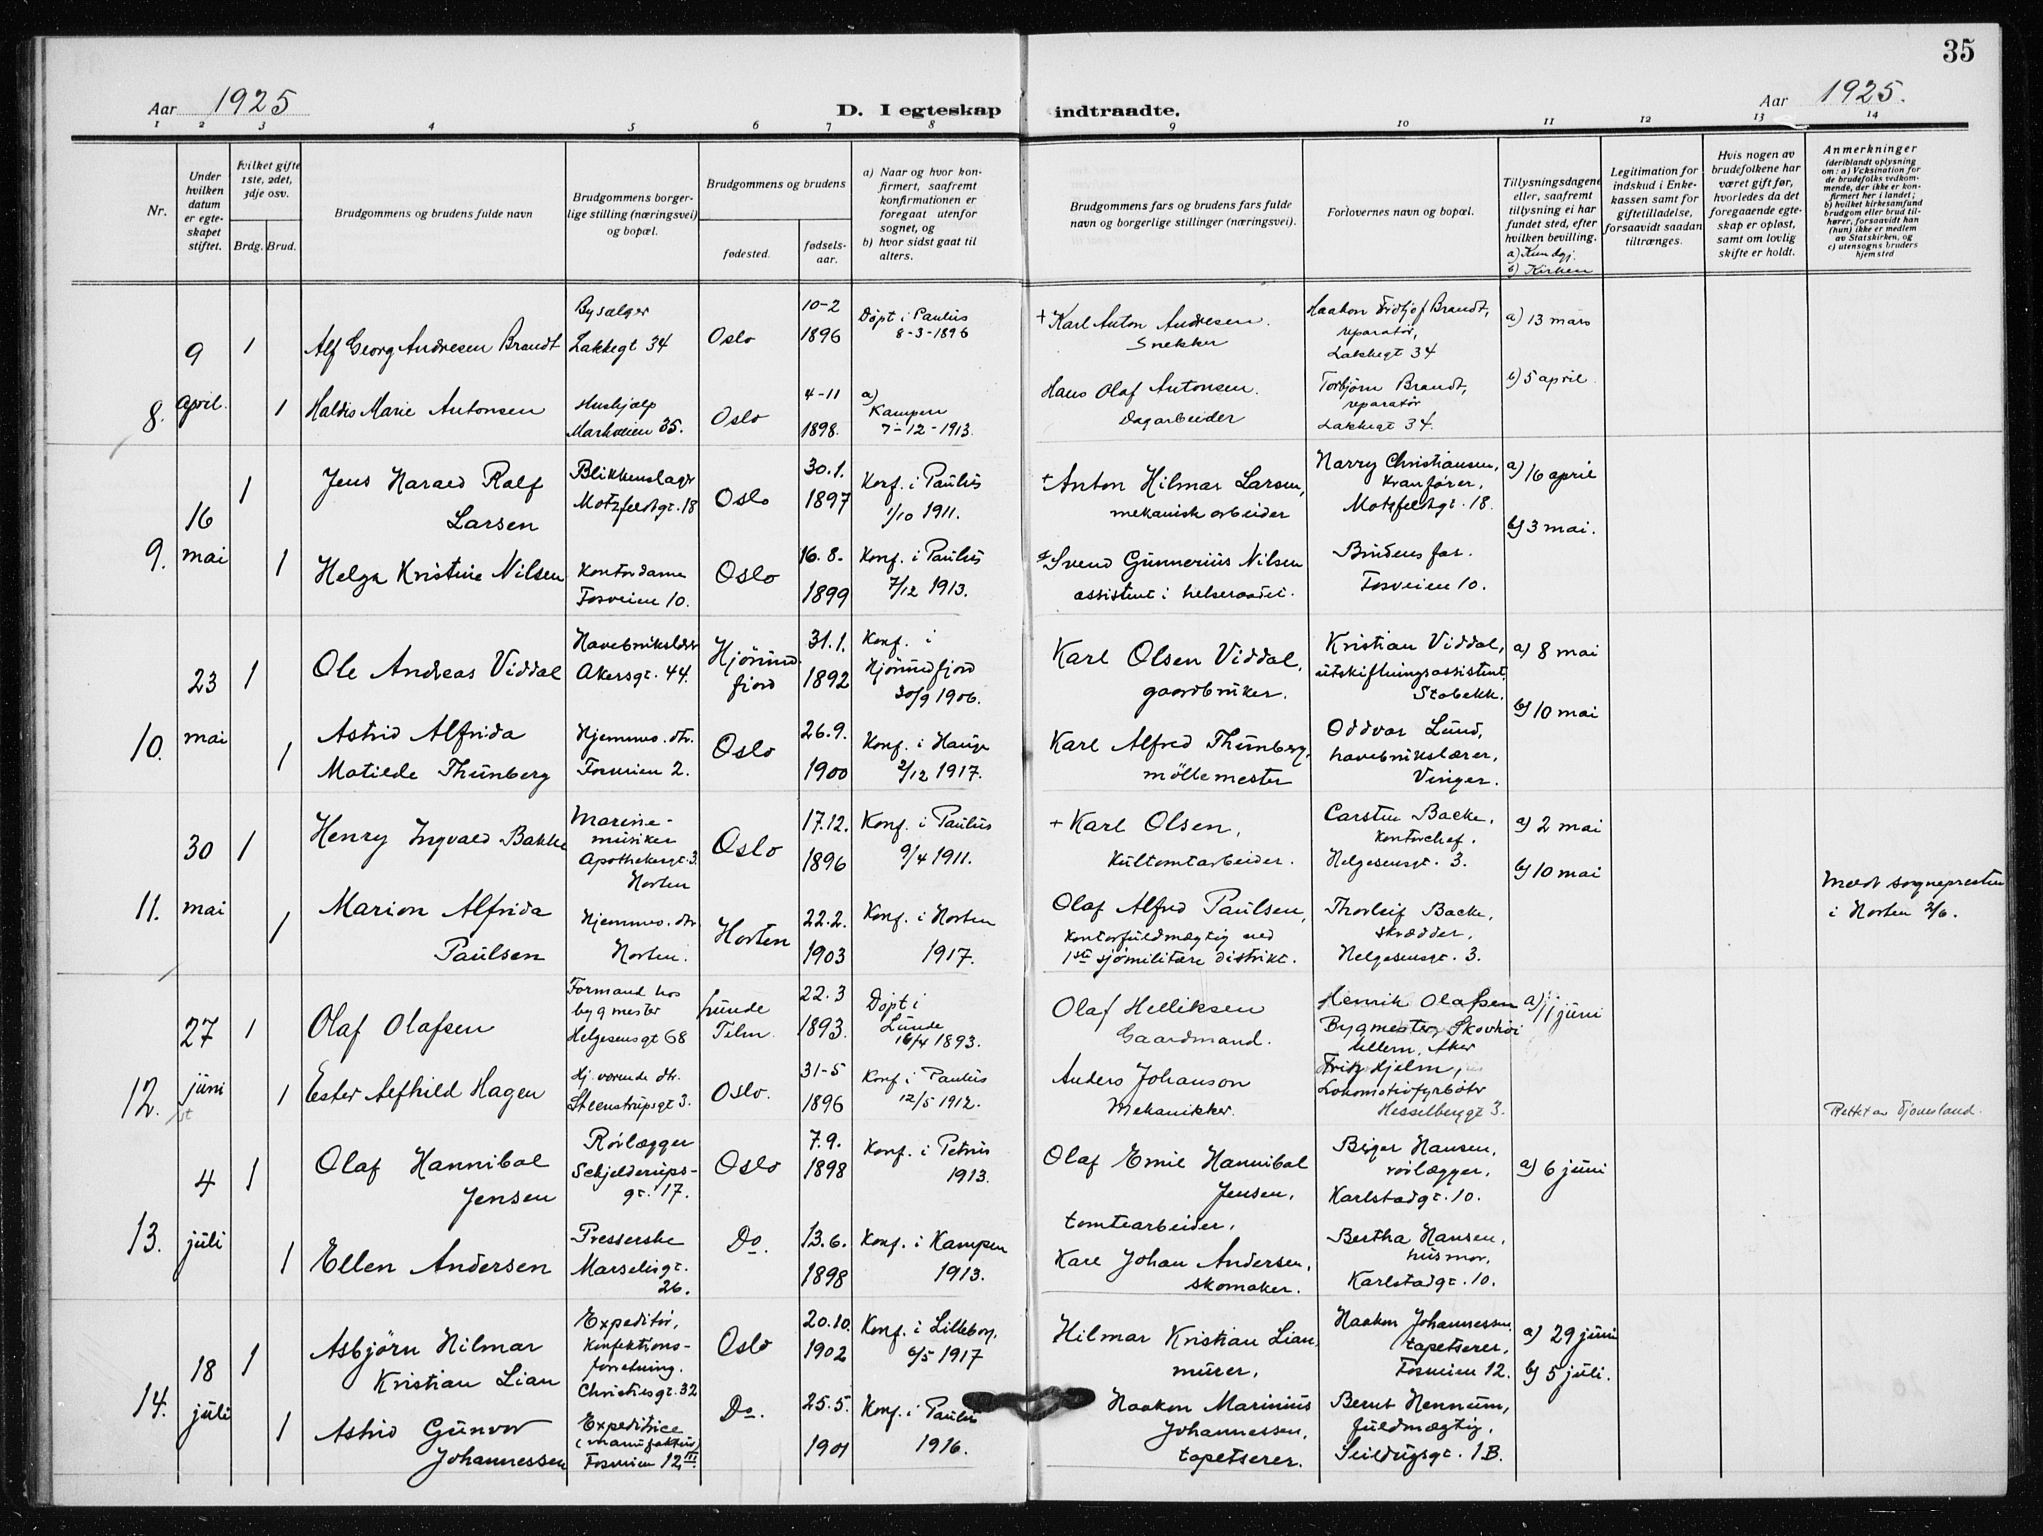 35
Aar 1925
D. I egteskap indtraadte.
Aar 1925.
1 2 3 4 5 6 7 8 9 10 11 12 13 14
Nr.
Under hvilken datum er egteskapet stiftet.
Hvilket gifte 1ste, 2det, 3dje osv.
Brdg. Brud.
Brudgommens og brudens fulde navn
Brudgommens borgerlige stilling (næringsvei) og bopæl.
Brudgommens og brudens
fødested.
fødselsaar.
a) Naar og hvor konfirmert, saafremt konfirmationen er foregaat utenfor sognet, og
b) hvor sidst gaat til alters.
Brudgommens fars og brudens fars fulde navn og borgerlige stillinger (næringsvei).
Forlovernes navn og bopæl.
Tillysningsdagene eller, saafremt tillysning ei har fundet sted, efter hvilken bevilling.
a) Kundgj.
b) Kirken
Legitimation for indskud i Enkekassen samt for giftetilladelse, forsaavidt saadan tiltrænges.
Hvis nogen av brudefolkene har været gift før, hvorledes da det foregaaende egteskap er opløst, samt om lovlig skifte er holdt.
Anmerkninger
(deriblandt oplysning om: a) Vaksination for de brudefolks vedkommende, der ikke er konfirmert her i landet; b) hvilket kirkesamfund brudgom eller brud tilhører, forsaavidt han (hun) ikke er medlem av Statskirken, og c) utensogns bruders hjemsted
8.
9 april.
1
Alf Georg Andresen Brandt
Bysælger
Lakkegt 34
Oslo
10-2
1896
Døpt i Paulus
8-3-1896
+ Karl Anton Andresen.
Snekker
Haakon Fridtjof Brandt,
reparatør,
Lakkegt 34
a) 13 mars
1
Haldis Marie Antonsen
Hushjælp
Markveien 35.
Oslo
4-11
1898.
a)
Kampen
7-12-1913.
Hans Olaf Antonsen.
Dagarbeider
Torbjørn Brandt,
reparatør
Lakkegt 34.
b) 5 april
9.
16 mai
1
Jens Harald Rolf
Larsen
Blikkenslager
Motzfeldtgt. 18
Oslo
30.1.
1897
Konf. i Paulus
1/10 1911.
+ Anton Hilmar Larsen,
mekanisk arbeider
Harry Christiansen,
kranfører,
Motzfeldtgt. 18.
a) 16 april
b) 3 mai.
1
Helga Kristine Nilsen
Kontordame
Fosveien 10.
Oslo
16.8.
1899
Konf. i Paulus
7/12 1913.
+ Svend Gunnerius Nilsen
assistent i helseraadet.
Brudens far.
Fosveien 10.
10.
23 mai
1
Ole Andreas Viddal
Havebrukslærer
Akersgt. 44.
Hjørund
fjord
31.1.
1892
Konf. i
Hjørundfjord
30/9 1906.
Karl Olsen Viddal,
gaardbruker.
Kristian Viddal,
utskiftningsassistent,
Stabekk.
a) 8 mai
b) 10 mai
1
Astrid Alfrida
Matilde Thunberg
Hjemmev. dtr.
Fosveien 2.
Oslo
26.9.
1900
Konf. i Hauge
2/12 1917.
Karl Alfred Thunberg,
möllemester
Oddvar Lund,
havebrukslærer,
Vinger.
11.
30 mai
1
Henry Ingvald Bakke
Marine-
musiker
Apothekergt. 3.
Horten
Oslo
17.12.
1896
Konf. i Paulus
9/4 1911.
+ Karl Olsen,
Kultomtarbeider.
Carsten Backe,
kontorchef.
Helgesensgt. 3.
a) 2 mai
b) 10 mai
1
Marion Alfrida
Paulsen
Hjemmev. dtr
Horten.
Horten
22.2.
1903
Konf. i Horten
1917.
Olaf Alfred Paulsen,
kontorfuldmægtig ved
1ste sjømilitære distrikt.
Thorleif Backe,
skrædder,
Helgesensgt. 3.
Meldt sogneprestten
i Horten 2/6.
12.
27 juni
1
Olaf Olafsen
Formand hos
bygmester
Helgesensgt 68
Lunde
Telm.
22.3
1893.
Døpt i
Lunde
16/4 1893.
Olaf Helliksen
Gaardmand.
Henrik Olafsen
Bygmester, Skovhøi
Ullern, Aker
a) 11 juni
1
Ester Alfhild Hagen
Hj. værende dtr.
Steenstrupsgt 3.
Oslo.
31-5
1896
Konf i Paulus
12/5 1912.
Anders Johanson
Mekanikker.
Fritz Hjelm,
Lokomotivfyrbøter
Hesselberggt 3.
Rettet av Tjomsland.
13.
4 juli
1
Olaf Hannibal
Jensen
Rørlægger
Schjelderups-
gt. 17.
Oslo
7.9.
1898
Konf. i Petrus
1913.
Olaf Emil Hannibal
Jensen,
tomtearbeider,
Birger Hansen,
rørlægger,
Karlstadgt. 10.
a) 6 juni
1
Ellen Andersen
Presserske
Marselisgt.
26.
Do.
13.6.
1898
Konf. i Kampen
1913.
Karl Johan Andersen,
skomaker.
Bertha Hansen,
husmor,
Karlstadgt. 10.
14.
18 juli
1
Asbjörn Hilmar
Kristian Lian
Expeditör,
Konfektions-
forretning.
Christiesgt. 32
Oslo
20.10.
1902
Konf. i Lilleborg,
6/5 1917
Hilmar Kristian Lian,
murer,
Haakon Johannessen,
tapetserer,
Fosveien 12.
a) 29 juni
b) 5 juli.
1
Astrid Gunvor
Johannessen
Expeditrice
(manufaktur)
Fosveien 12 III.
Do.
25.5.
1901
Konf. i Paulus
1916.
Haakon Marinius
Johannessen,
tapetserer.
Bernt Hennum,
fuldmægtig,
Seildugsgt. 1B.